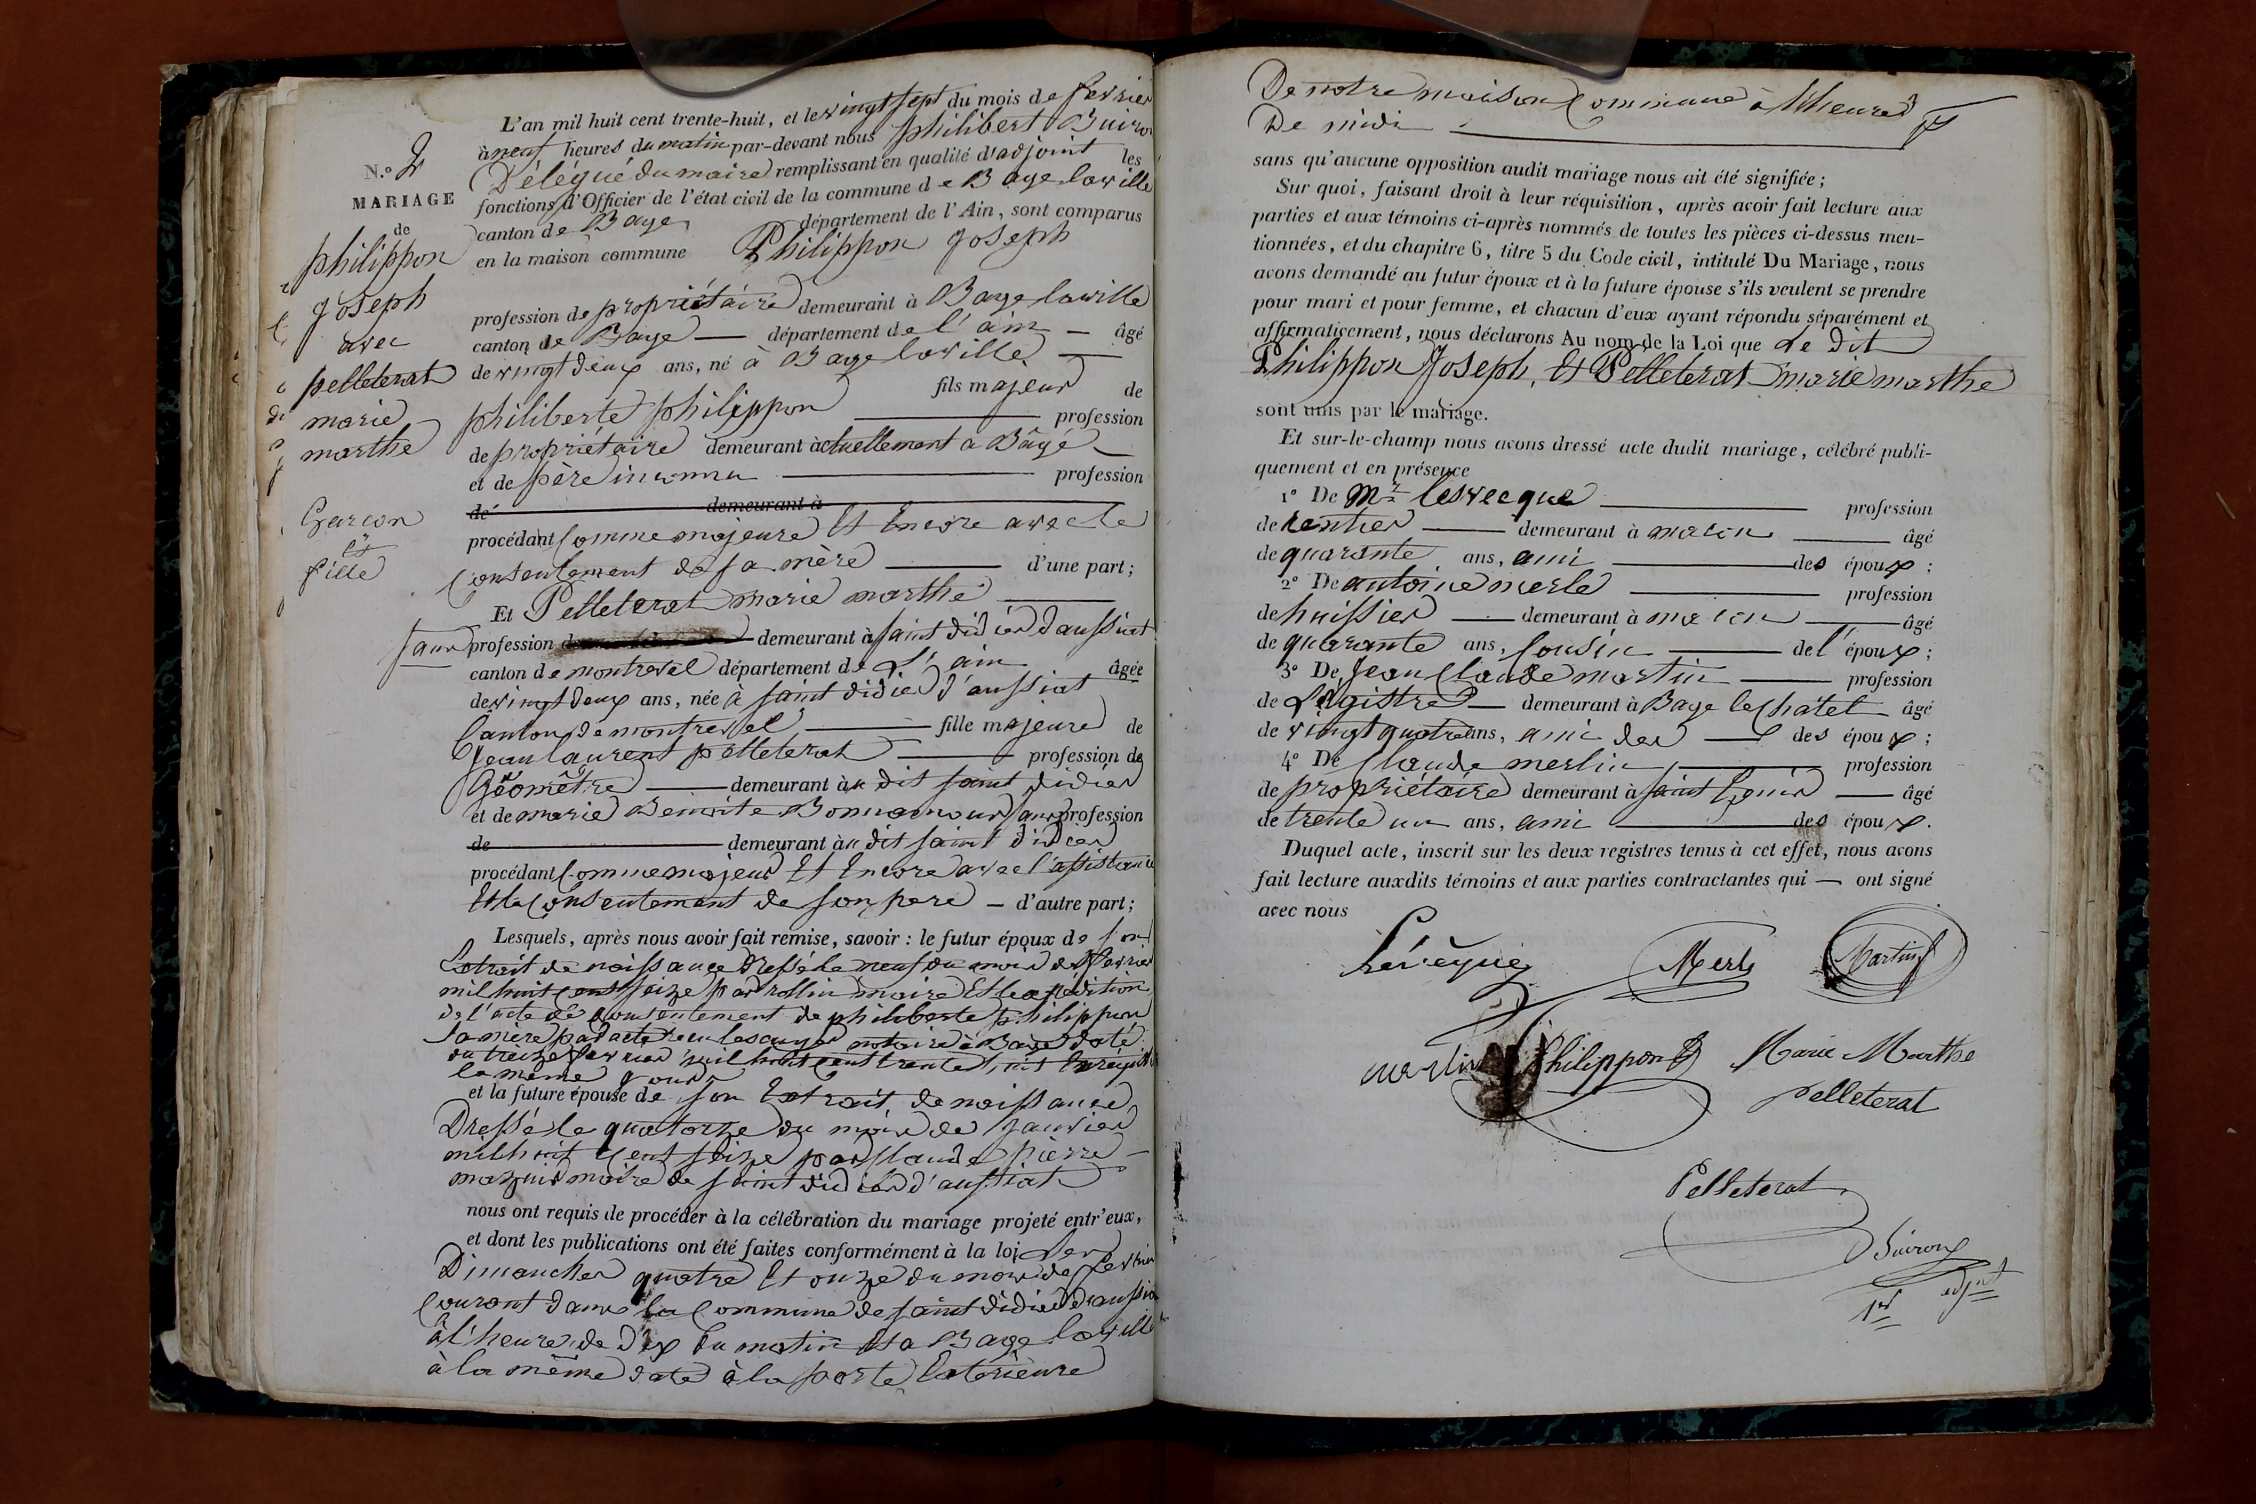 N.o 2
MARIAGE
de
philippon
joseph
avec
pelleterat
marie
marthe
Garcon
et
fille
L'an mil huit cent trente-huit, et le vingt sept du mois de fevrier
à neuf heures du matin par-devant nous philibert Buiron
Délégué du maire remplissant en qualité d'adjoint les
fonctions d'Officier de l'état civil de la commune de Bage laville
canton de Bage département de l'Ain, sont comparus
en la maison commune Philippon Joseph
profession de propriétaire demeurant à Bage laville
canton de Bage département de l'ain âgé
de vingt deux ans, né à Bage laville
fils majeur de
philiberte philippon profession
de propriétaire demeurant àctuellement à Bâgé
et de père inconnu profession
de demeurant à
procédant Comme majeure Et Encore avec le
Consentement de sa mère d'une part;
Et Pelleterat marie marthe
sans profession demeurant à saint didier daussiat
canton de montrevel département de L'ain âgée
de vingt deux ans, née à saint didier d'aussiat
Canton de montrevel fille majeure de
Jean laurent pelleterat profession de
Géomètre demeurant àu dit saint didier
et de marie Benoite Bonnamour sans profession
de demeurant àu dit saint didier
procédant Comme majeur Et Encore avec l'assistance
Et le Consentement de son pere d'autre part;
Lesquels, après nous avoir fait remise, savoir : le futur époux de son
Extrait de naissance Dressé le neuf du mois de fevrier
mil huit cent seize par rollin maire Et lexpédition
de l'acte de Consentement de philiberte philippon
sa mère par acte recu lescuyer notaire à Bage daté
du treize fevrier mil huit cent trente huit Enregistré
le même jour
et la future épouse de son Extrait de naissance
Dressé le quatorze du mois de janvier
mil huit cent seize par Claude pierre
mazuir maire de saint didier d'aussiat
nous ont requis de procéder à la célébration du mariage projeté entr'eux,
et dont les publications ont été faites conformément à la loi Les
Dimanches quatre Et onze du mois de fevrier
Courant dans la Commune de saint didier d'aussiat
à l'heure de dix du matin Et a Bage laville
à la même date à la porte Exterieure
De notre maison Commune à l'heure
De midi
sans qu'aucune opposition audit mariage nous ait été signifiée;
Sur quoi, faisant droit à leur réquisition, après avoir fait lecture aux
parties et aux témoins ci-après nommés de toutes les pièces ci-dessus men-
tionnées, et du chapitre 6, titre 5 du Code civil, intitulé Du Mariage, nous
avons demandé au futur époux et à la future épouse s'ils veulent se prendre
pour mari et pour femme, et chacun d'eux ayant répondu séparément et
affirmativement, nous déclarons Au nom de la Loi que Le dit
Philippon Joseph, Et Pelleterat marie marthe
sont unis par le mariage.
Et sur-le-champ nous avons dressé acte dudit mariage, célébré publi-
quement et en présence
1o De Mr lesvecque profession
de rentier demeurant à macon âgé
de quarante ans, ami des époux;
2o De antoine merle profession
de huissier demeurant à macon âgé
de quarante ans, Cousin de l'époux;
3o De Jean Claude martin profession
de Légistre demeurant à Bage le Chatel âgé
de vingt quatre ans, ami des des époux;
4o De Claude merlin profession
de propriétaire demeurant à saint âgé
de trente un ans, ami des époux.
Duquel acte, inscrit sur les deux registres tenus à cet effet, nous avons
fait lecture auxdits témoins et aux parties contractantes qui ont signé
avec nous
Lévèque Merle Martin
merlin Philippon Marie Marthe
pelleterat
Pelleterat
Buiron
1er adjnt